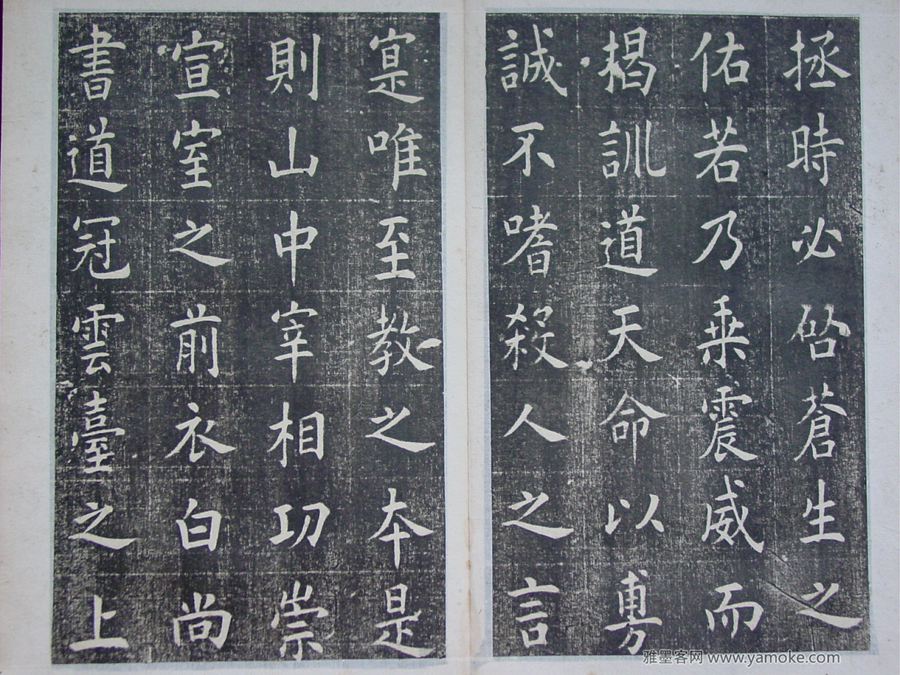 拯時必蒼生之
佑若乃乗震威而
楬訓道天命以旉
誠不嗜殺人之言
寔唯至教之本是
則山中宰相功崇
宣室之前衣白尚
書道冠雲臺之上
雅墨客网 www.yamoke.com